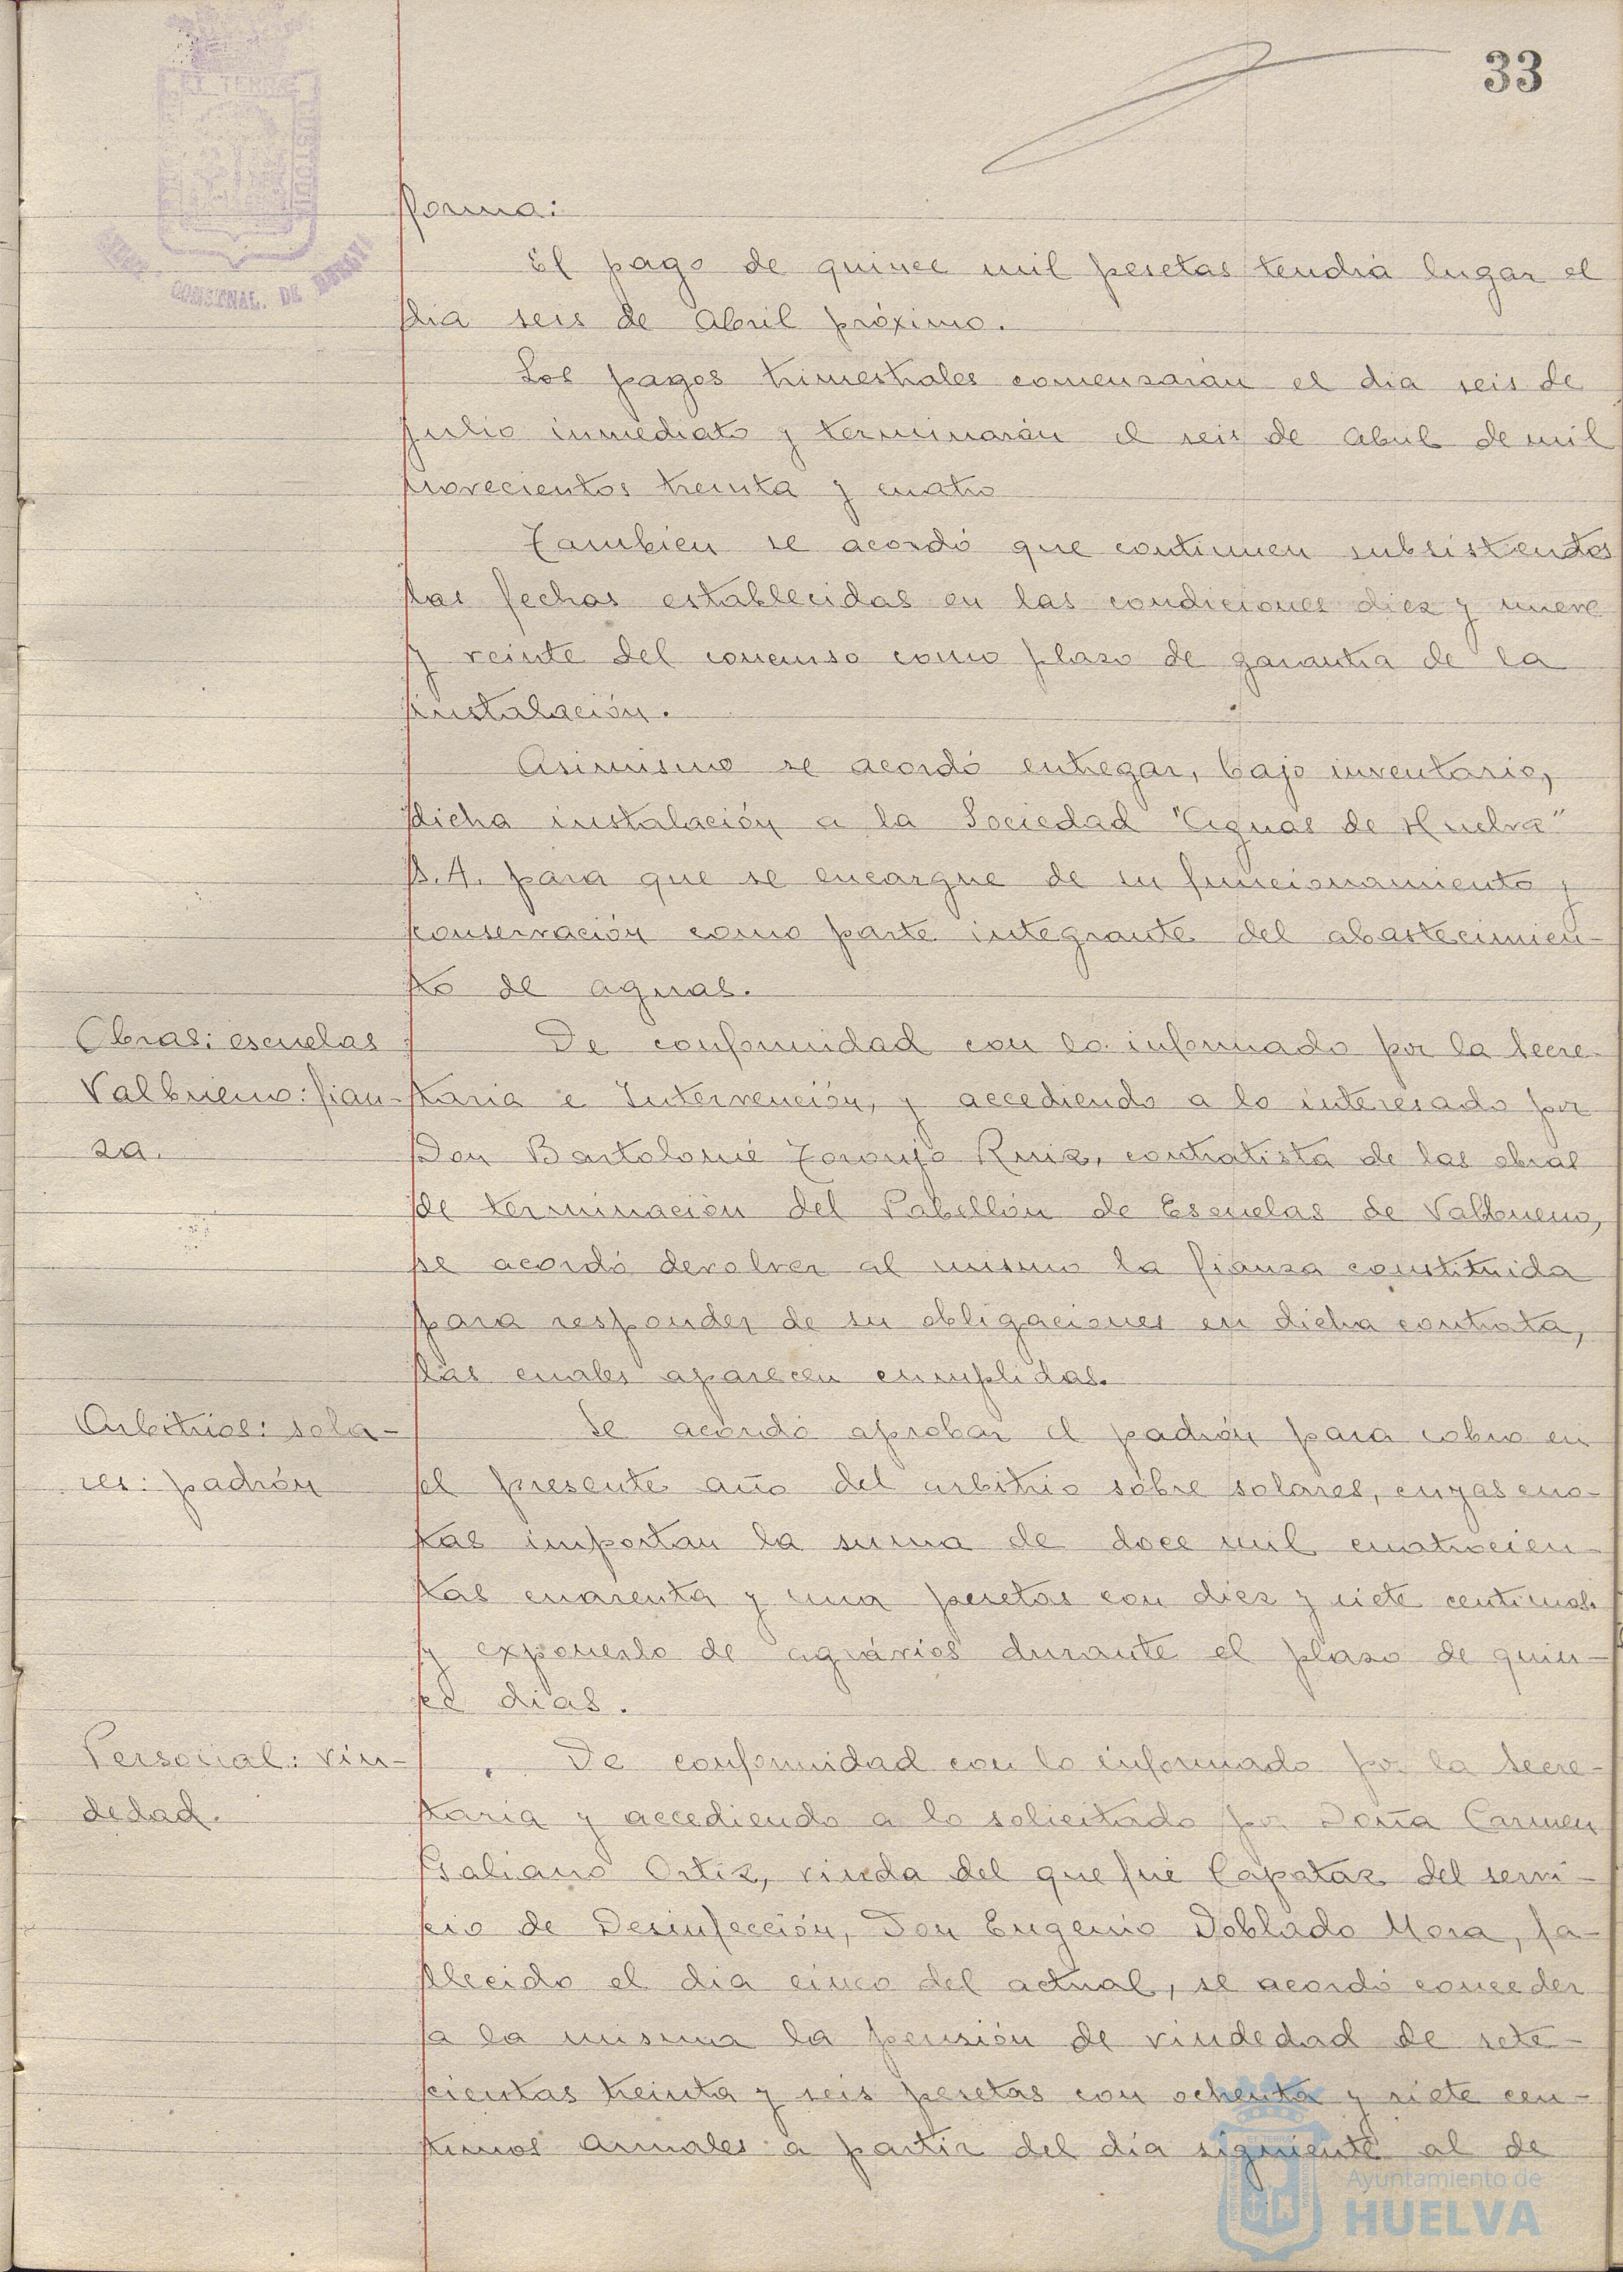 33
forma:
El pago de quince mil pesetas tendrá lugar el
dia seis de Abril próximo.
Los pagos trimestrales comenzarán el dia seis de
julio inmediato y terminarán el seis de Abril de mil
novecientos treinta y cuatro
Tambien se acordó que continuen subsistentes
las fechas establecidas en las condiciones diez y nueve
y veinte del concurso como plazo de garantia de la
instalación.
Asimismo se acordó entregar, bajo inventario,
dicha instalación a la Sociedad "Aguas de Huelva"
S.A. para que se encargue de su funcionamiento y
conservación como parte integrante del abastecimien-
to de aguas.
Obras: escuelas
Valbueno: fian-
za.
De conformidad con lo informado por la Secre-
taria e Intervención, y accediendo a lo interesado por
Don Bartolomé Toronjo Ruiz, contratista de las obras
de terminación del Pabellón de Escuelas de Valbueno,
se acordó devolver al mismo la fianza constituida
para responder de su obligaciones en dicha contrata,
las cuales aparecen cumplidas.
Arbitrios: sola-
res: padrón
Se acordó aprobar el padrón para cobro en
el presente año del arbitrio sobre solares, cuyas cuo-
tas importan la suma de doce mil cuatrocien-
tas cuarenta y una pesetas con diez y siete centimos
y exponerlo de agrávios durante el plazo de quin-
ce dias.
Personal: viu-
dedad.
De conformidad con lo informado por la Secre-
taria y accediendo a lo solicitado por Doña Carmen
Galiano Ortiz, viuda del que fué Capataz del servi-
cio de Desinfección, Don Eugenio Doblado Mora, fa-
llecido el dia cinco del actual, se acordó conceder
a la misma la pensión de viudedad de sete-
cientas treinta y seis pesetas con ochenta y siete cen-
timos anuales a partir del dia siguiente al de
Ayuntamiento de
HUELVA